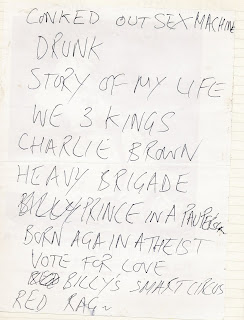 CONKED OUT SEX MACHINE
DRUNK
STORY OF MY LIFE
WE 3 KINGS
CHARLIE BROWN
HEAVY BRIGADE
BILLY PRINCE IN A PAUPER'S
BORN AGAIN ATHEIST
VOTE FOR LOVE
BILLY'S SMART CIRCUS
RED RAG